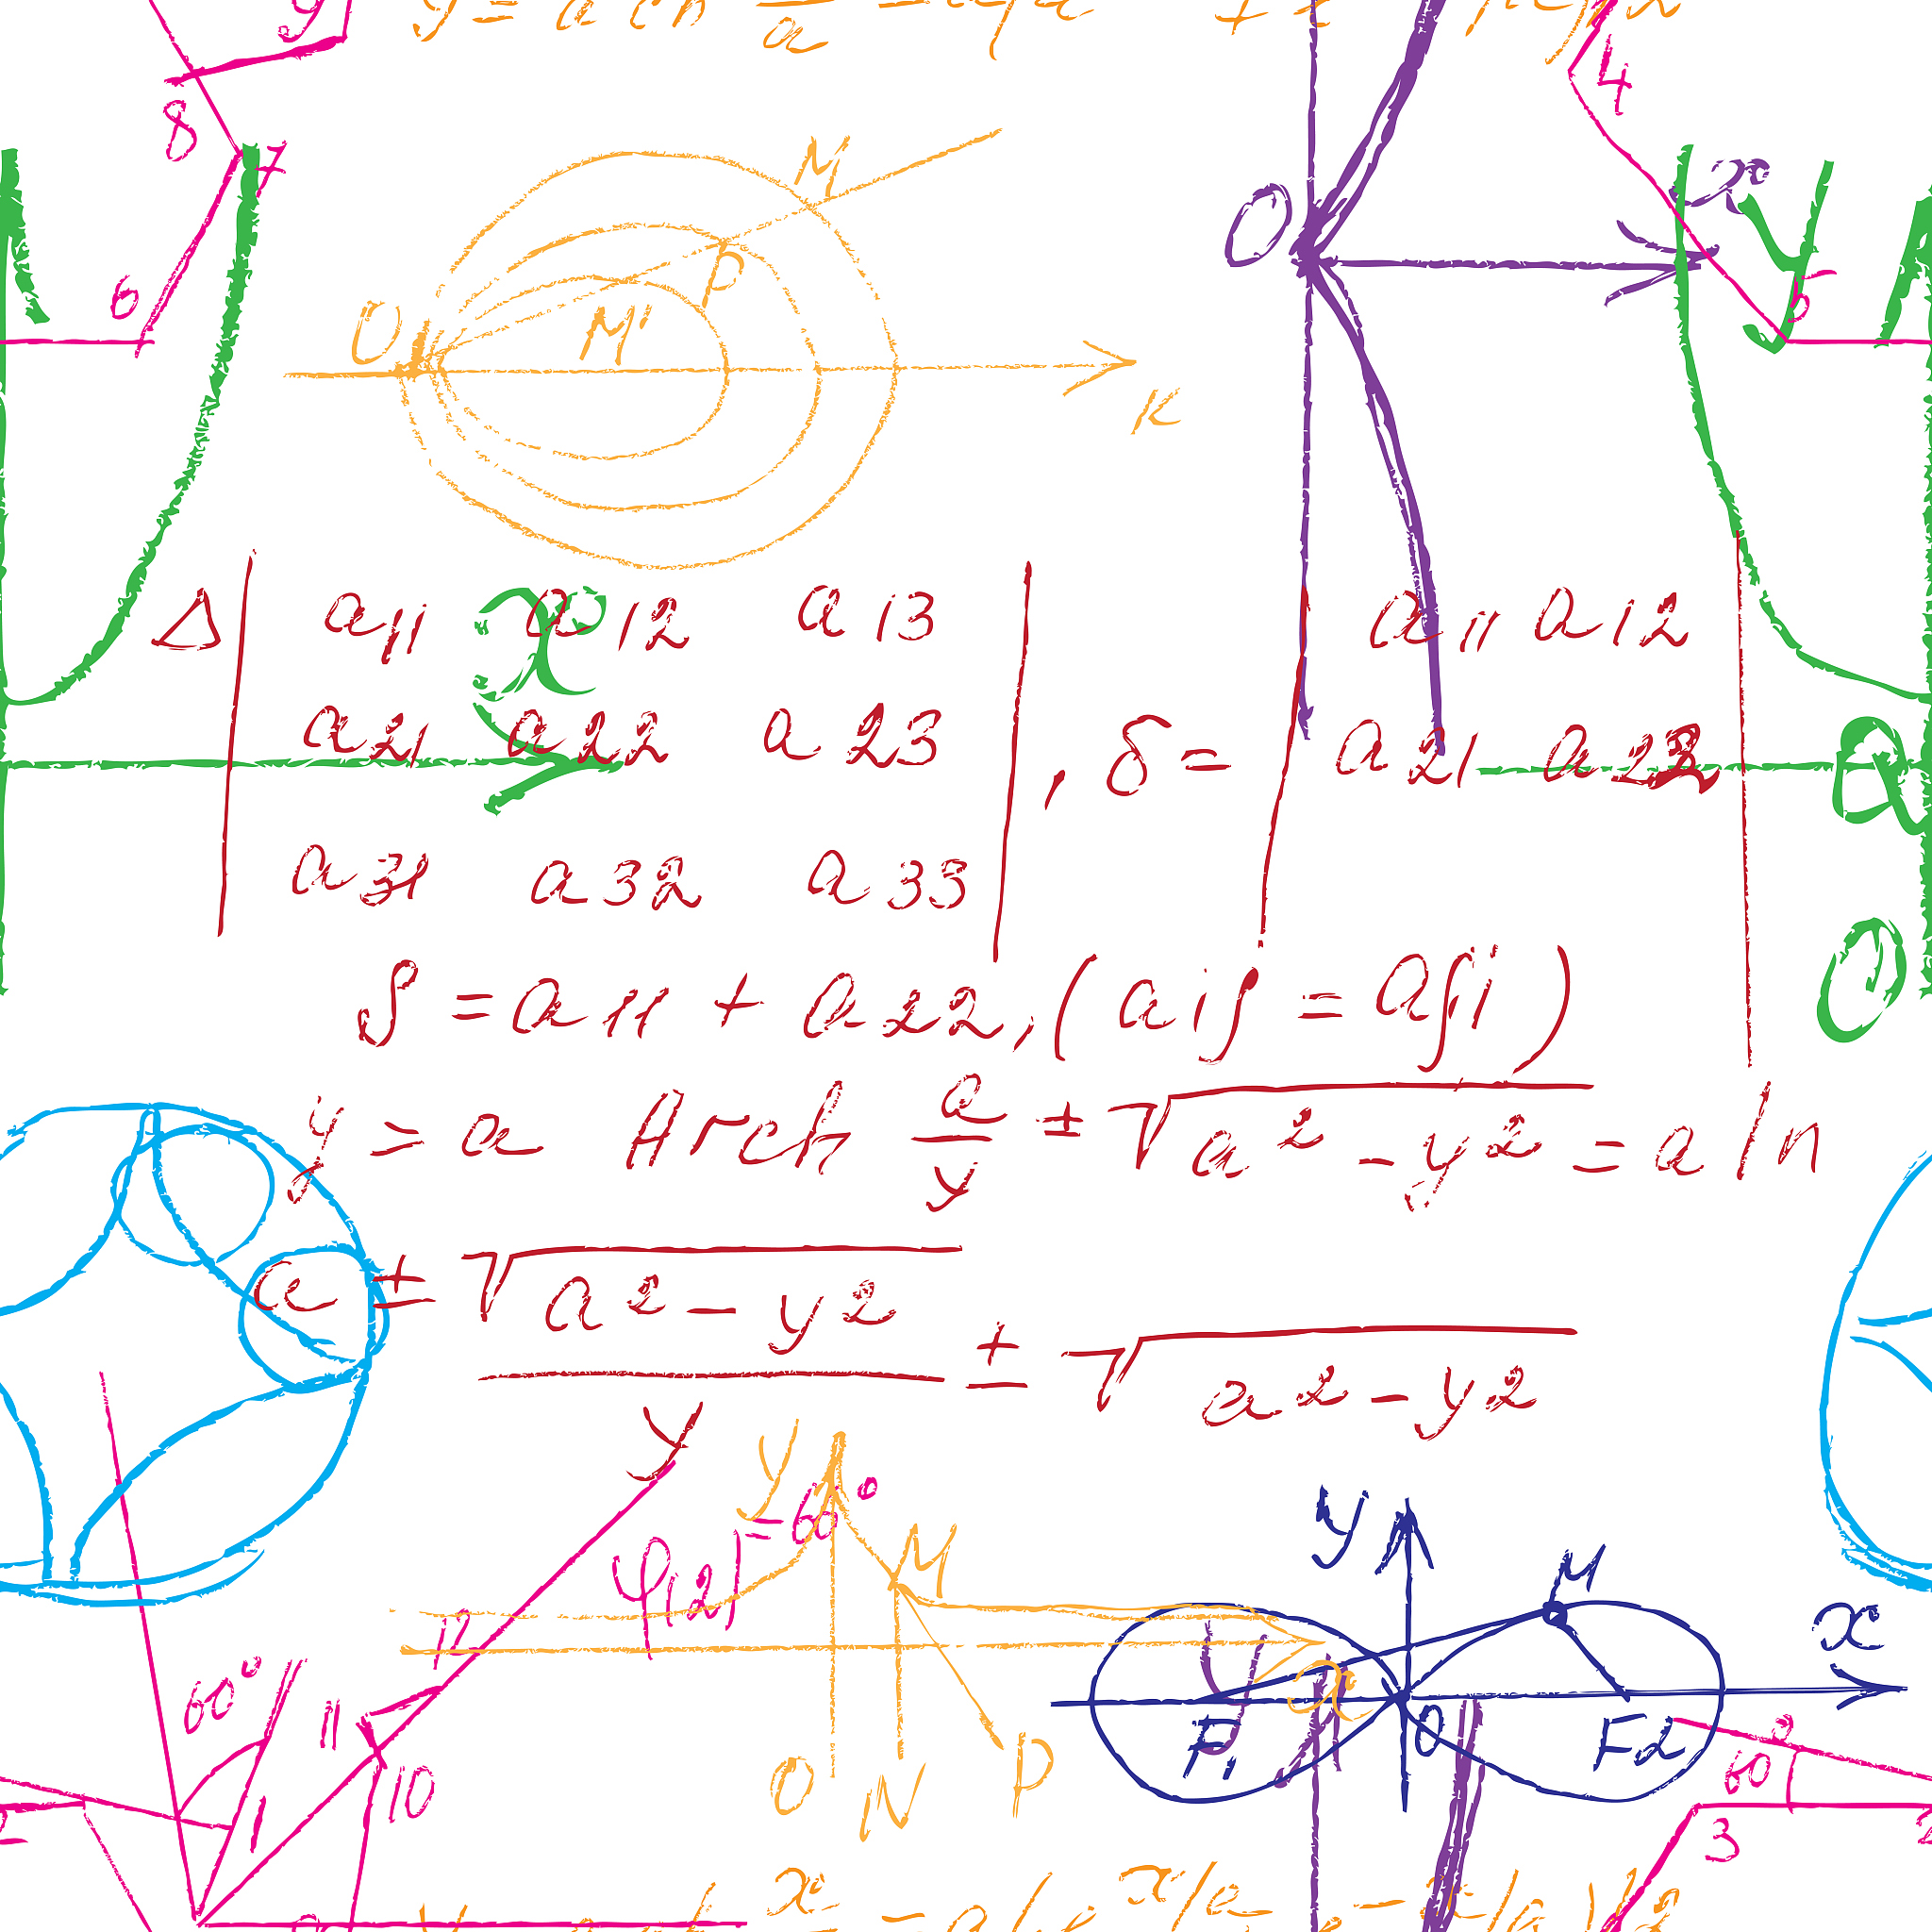 8
7
4
6
5
M
O
P
M'
K
O
x
y
Δ | a11 a12 a13 |
| a21 a22 a23 |
| a31 a32 a33 |
, δ = | a11 a12 |
| a21 a22 |
x
O
S = a11 + a22, (aij = aji)
y = a Arch a/y ± √a2 - y2 = a ln
a ± √a2 - y2 / y ± √a2 - y2
y
φ(2) = 60°
M
y
M
x
12
60°
11
10
1
y
x
O
N
P
F1
O
F2
60°
3
2